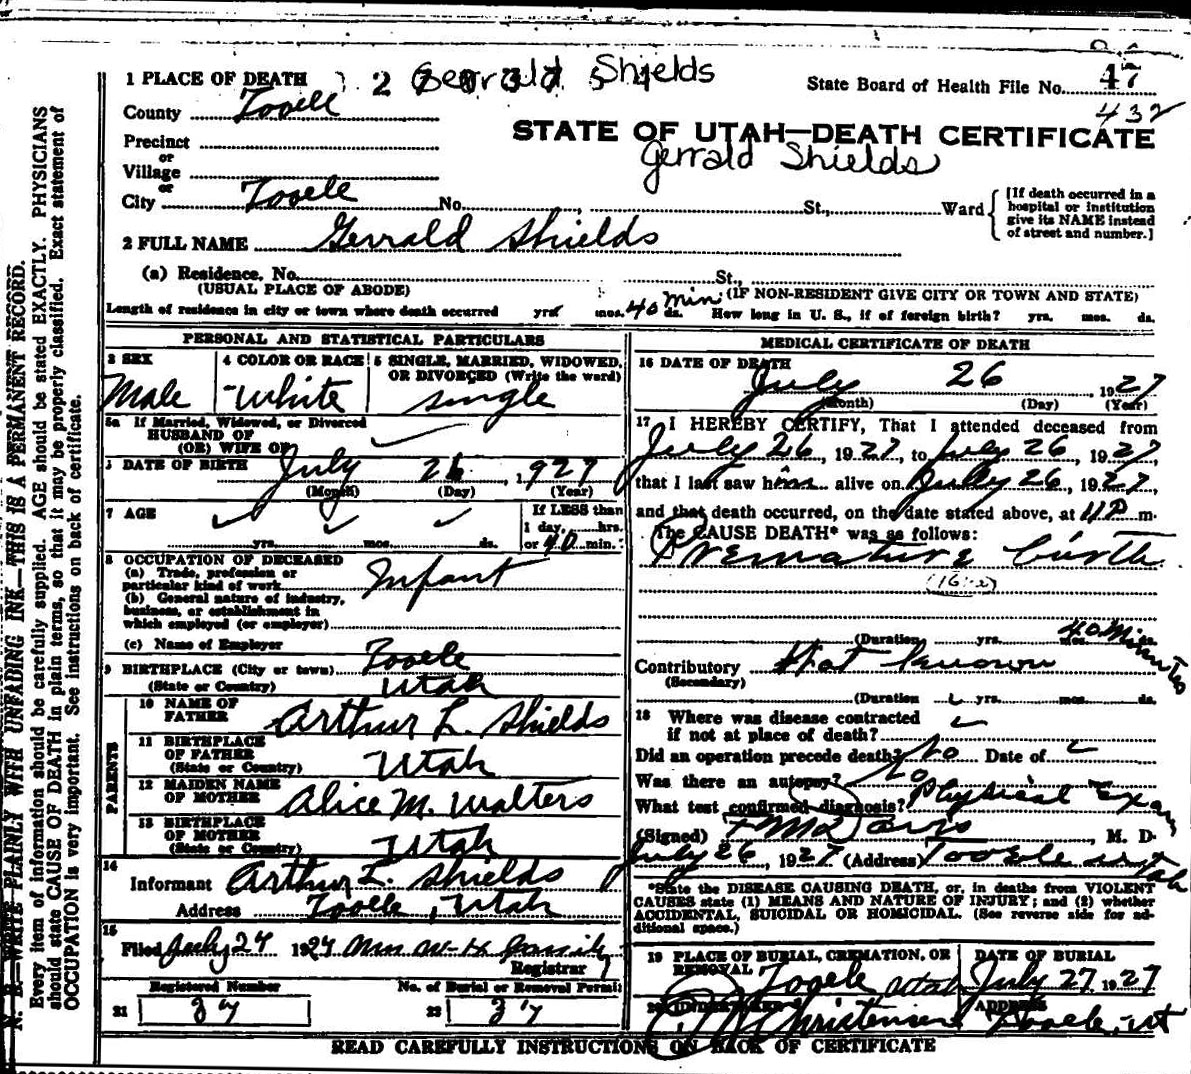 1 PLACE OF DEATH Gerrald Shields
State Board of Health File No. 47
County Tooele
432
STATE OF UTAH—DEATH CERTIFICATE
Precinct
Gerrald Shields
or
Village
or
City Tooele No. St., Ward
[If death occurred in a
hospital or institution
give its NAME instead
of street and number.]
2 FULL NAME Gerrald Shields
(a) Residence. No. St.,
(USUAL PLACE OF ABODE) (IF NON-RESIDENT GIVE CITY OR TOWN AND STATE)
Length of residence in city or town where death occurred yrs. mos. 40 min. ds. How long in U. S., if of foreign birth? yrs. mos. ds.
PERSONAL AND STATISTICAL PARTICULARS
3 SEX
Male
4 COLOR OR RACE
White
5 SINGLE, MARRIED, WIDOWED,
OR DIVORCED (Write the word)
single
5a If Married, Widowed, or Divorced
HUSBAND OF
(OR) WIFE OF
DATE OF BIRTH July 26, 1927
(Month) (Day) (Year)
7 AGE
yrs. mos. ds.
If LESS than
1 day, hrs.
or 40 min.
8 OCCUPATION OF DECEASED
(a) Trade, profession or
particular kind of work Infant
(b) General nature of industry,
business, or establishment in
which employed (or employer)
(c) Name of Employer
9 BIRTHPLACE (City or town) Tooele
(State or Country) Utah
PARENTS
10 NAME OF
FATHER Arthur L. Shields
11 BIRTHPLACE
OF FATHER
(State or Country) Utah
12 MAIDEN NAME
OF MOTHER Alice M. Walters
13 BIRTHPLACE
OF MOTHER
(State or Country) Utah
14
Informant Arthur L. Shields
Address Tooele, Utah
15
Filed July 27 1927 Mrs W. H.
Registrar
Registered Number
21 37
No. of Burial or Removal Permit
22 37
MEDICAL CERTIFICATE OF DEATH
16 DATE OF DEATH
July 26 1927
(Month) (Day) (Year)
17 I HEREBY CERTIFY, That I attended deceased from
July 26, 1927, to July 26, 1927,
that I last saw him alive on July 26, 1927,
and that death occurred, on the date stated above, at 11 P m.
The CAUSE DEATH* was as follows:
Premature birth
(Duration yrs. mos. ds. 40 Minutes
Contributory Not Known
(Secondary)
(Duration yrs. mos. ds.
18 Where was disease contracted
if not at place of death?
Did an operation precede death? No Date of
Was there an autopsy? No
What test confirmed diagnosis? Physical Exam
(Signed) Davis, M. D.
July 26, 1927 (Address) Tooele Utah
*State the DISEASE CAUSING DEATH, or, in deaths from VIOLENT
CAUSES state (1) MEANS AND NATURE OF INJURY; and (2) whether
ACCIDENTAL, SUICIDAL OR HOMICIDAL. (See reverse side for ad-
ditional space.)
19 PLACE OF BURIAL, CREMATION, OR
REMOVAL Tooele Utah
DATE OF BURIAL
July 27, 1927
20 UNDERTAKER
Christensen
ADDRESS
Tooele, Ut
READ CAREFULLY INSTRUCTIONS ON BACK OF CERTIFICATE
N. B.—WRITE PLAINLY WITH UNFADING INK—THIS IS A PERMANENT RECORD.
Every item of information should be carefully supplied. AGE should be stated EXACTLY. PHYSICIANS
should state CAUSE OF DEATH in plain terms, so that it may be properly classified. Exact statement of
OCCUPATION is very important. See instructions on back of certificate.